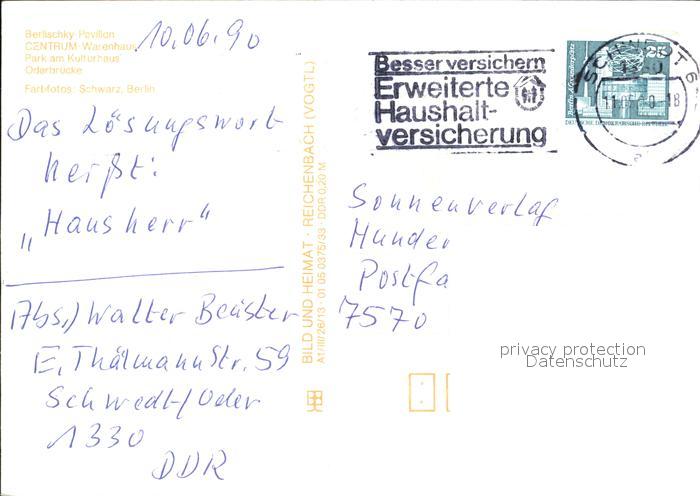 Berlischky Pavillon
CENTRUM-Warenhaus
Park am Kulturhaus
Oderbrücke
Farbfotos: Schwarz, Berlin
10.06.90
Das Lösungswort
heißt:
„Hausherr"
Abs.) Walter Beuster
E. Thälmannstr. 59
Schwedt/Oder
1330
DDR
BILD UND HEIMAT · REICHENBACH (VOGTL)
A1/III/26/13 · 01 05 0375/33 · DDR 0,20 M
Besser versichern
Erweiterte
Haushalt-
versicherung
25
Berlin, Alexanderplatz
SCHWEDT 6
1330
-18
a
Sonnenverlag
Hunder
Postfa
7570
privacy protection
Datenschutz